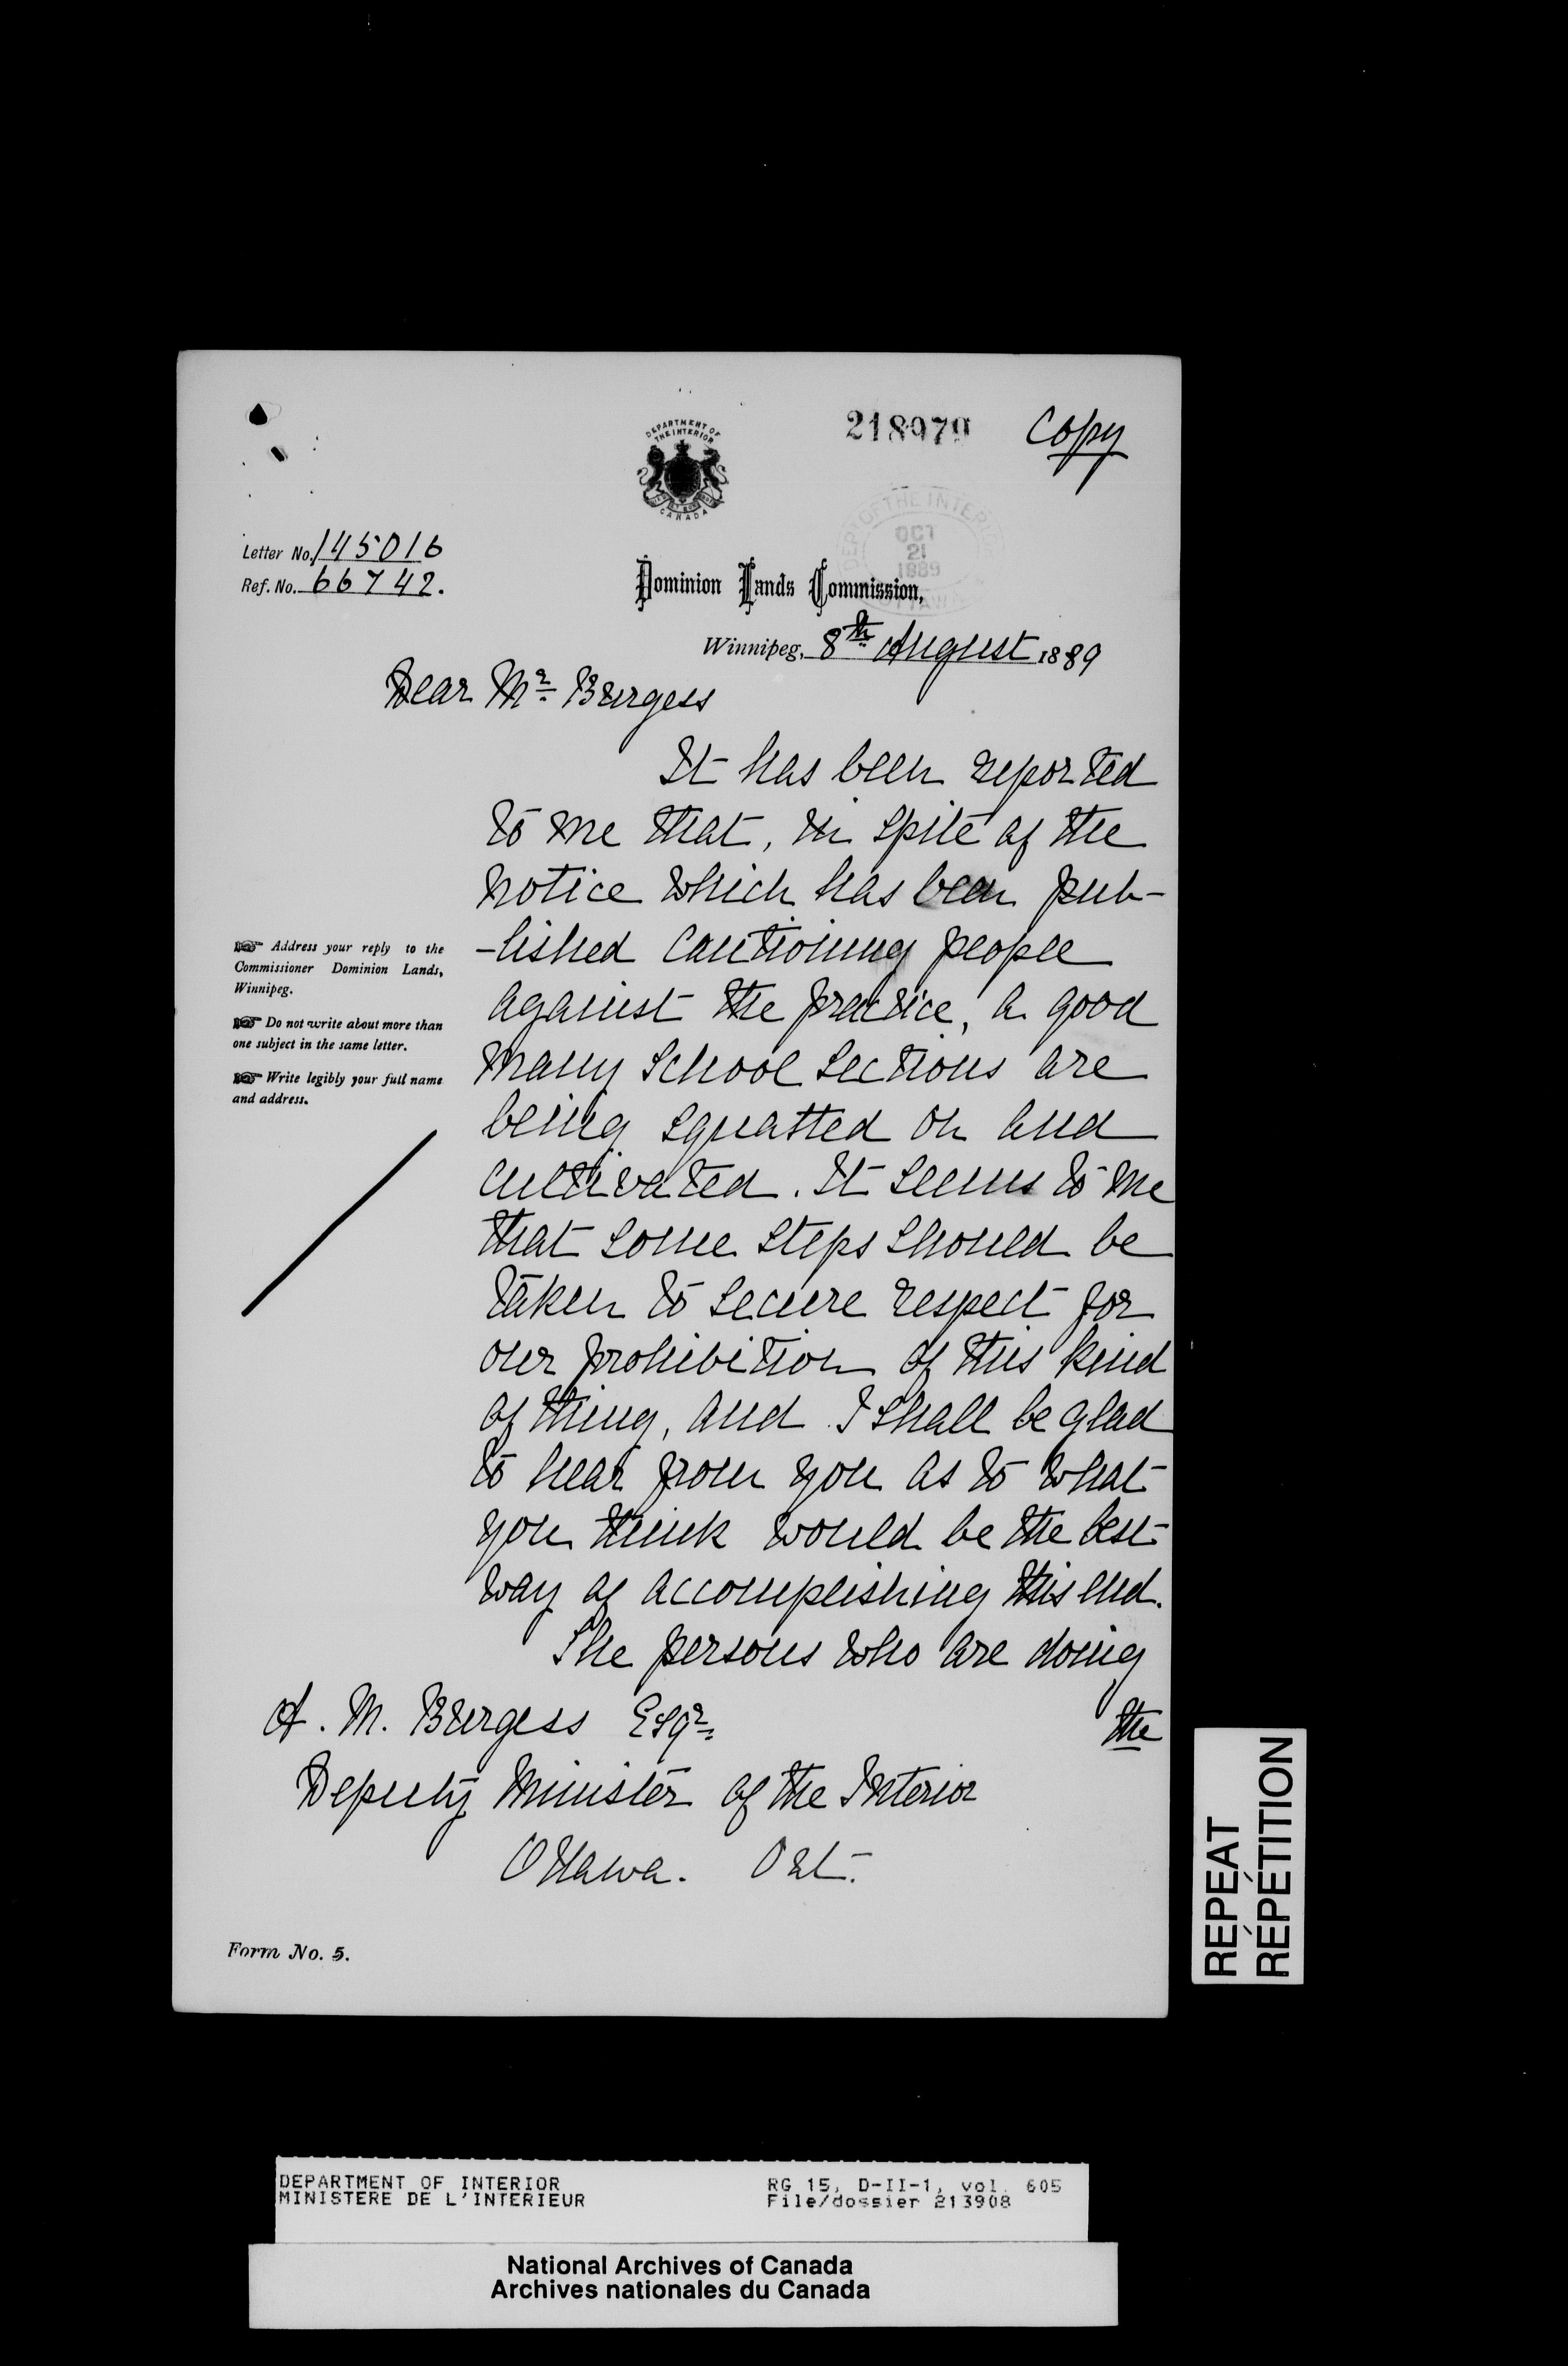 218979
Copy
DEPARTMENT OF
THE INTERIOR
CANADA
DEPT OF THE INTERIOR
OCT
21
1889
OTTAWA
Letter No. 145016
Ref. No. 66742.
Dominion Lands Commission,
Winnipeg, 8th August 1889
Dear Mr. Burgess
It has been reported
to me that, in spite of the
notice which has been pub-
-lished cautioning people
against the practice, a good
many school sections are
being squatted on and
cultivated. It seems to me
that some steps should be
taken to secure respect for
our prohibition of this kind
of thing, and I shall be glad
to hear from you as to what
you think would be the best
way of accomplishing this end.
The persons who are doing
the
A. M. Burgess Esqr.
Deputy Minister of the Interior
Ottawa. Ont.
☞ Address your reply to the
Commissioner Dominion Lands,
Winnipeg.
☞ Do not write about more than
one subject in the same letter.
☞ Write legibly your full name
and address.
Form No. 5.
REPEAT
RÉPÉTITION
DEPARTMENT OF INTERIOR
MINISTERE DE L'INTERIEUR
RG 15, D-II-1, vol. 605
File/dossier 213908
National Archives of Canada
Archives nationales du Canada